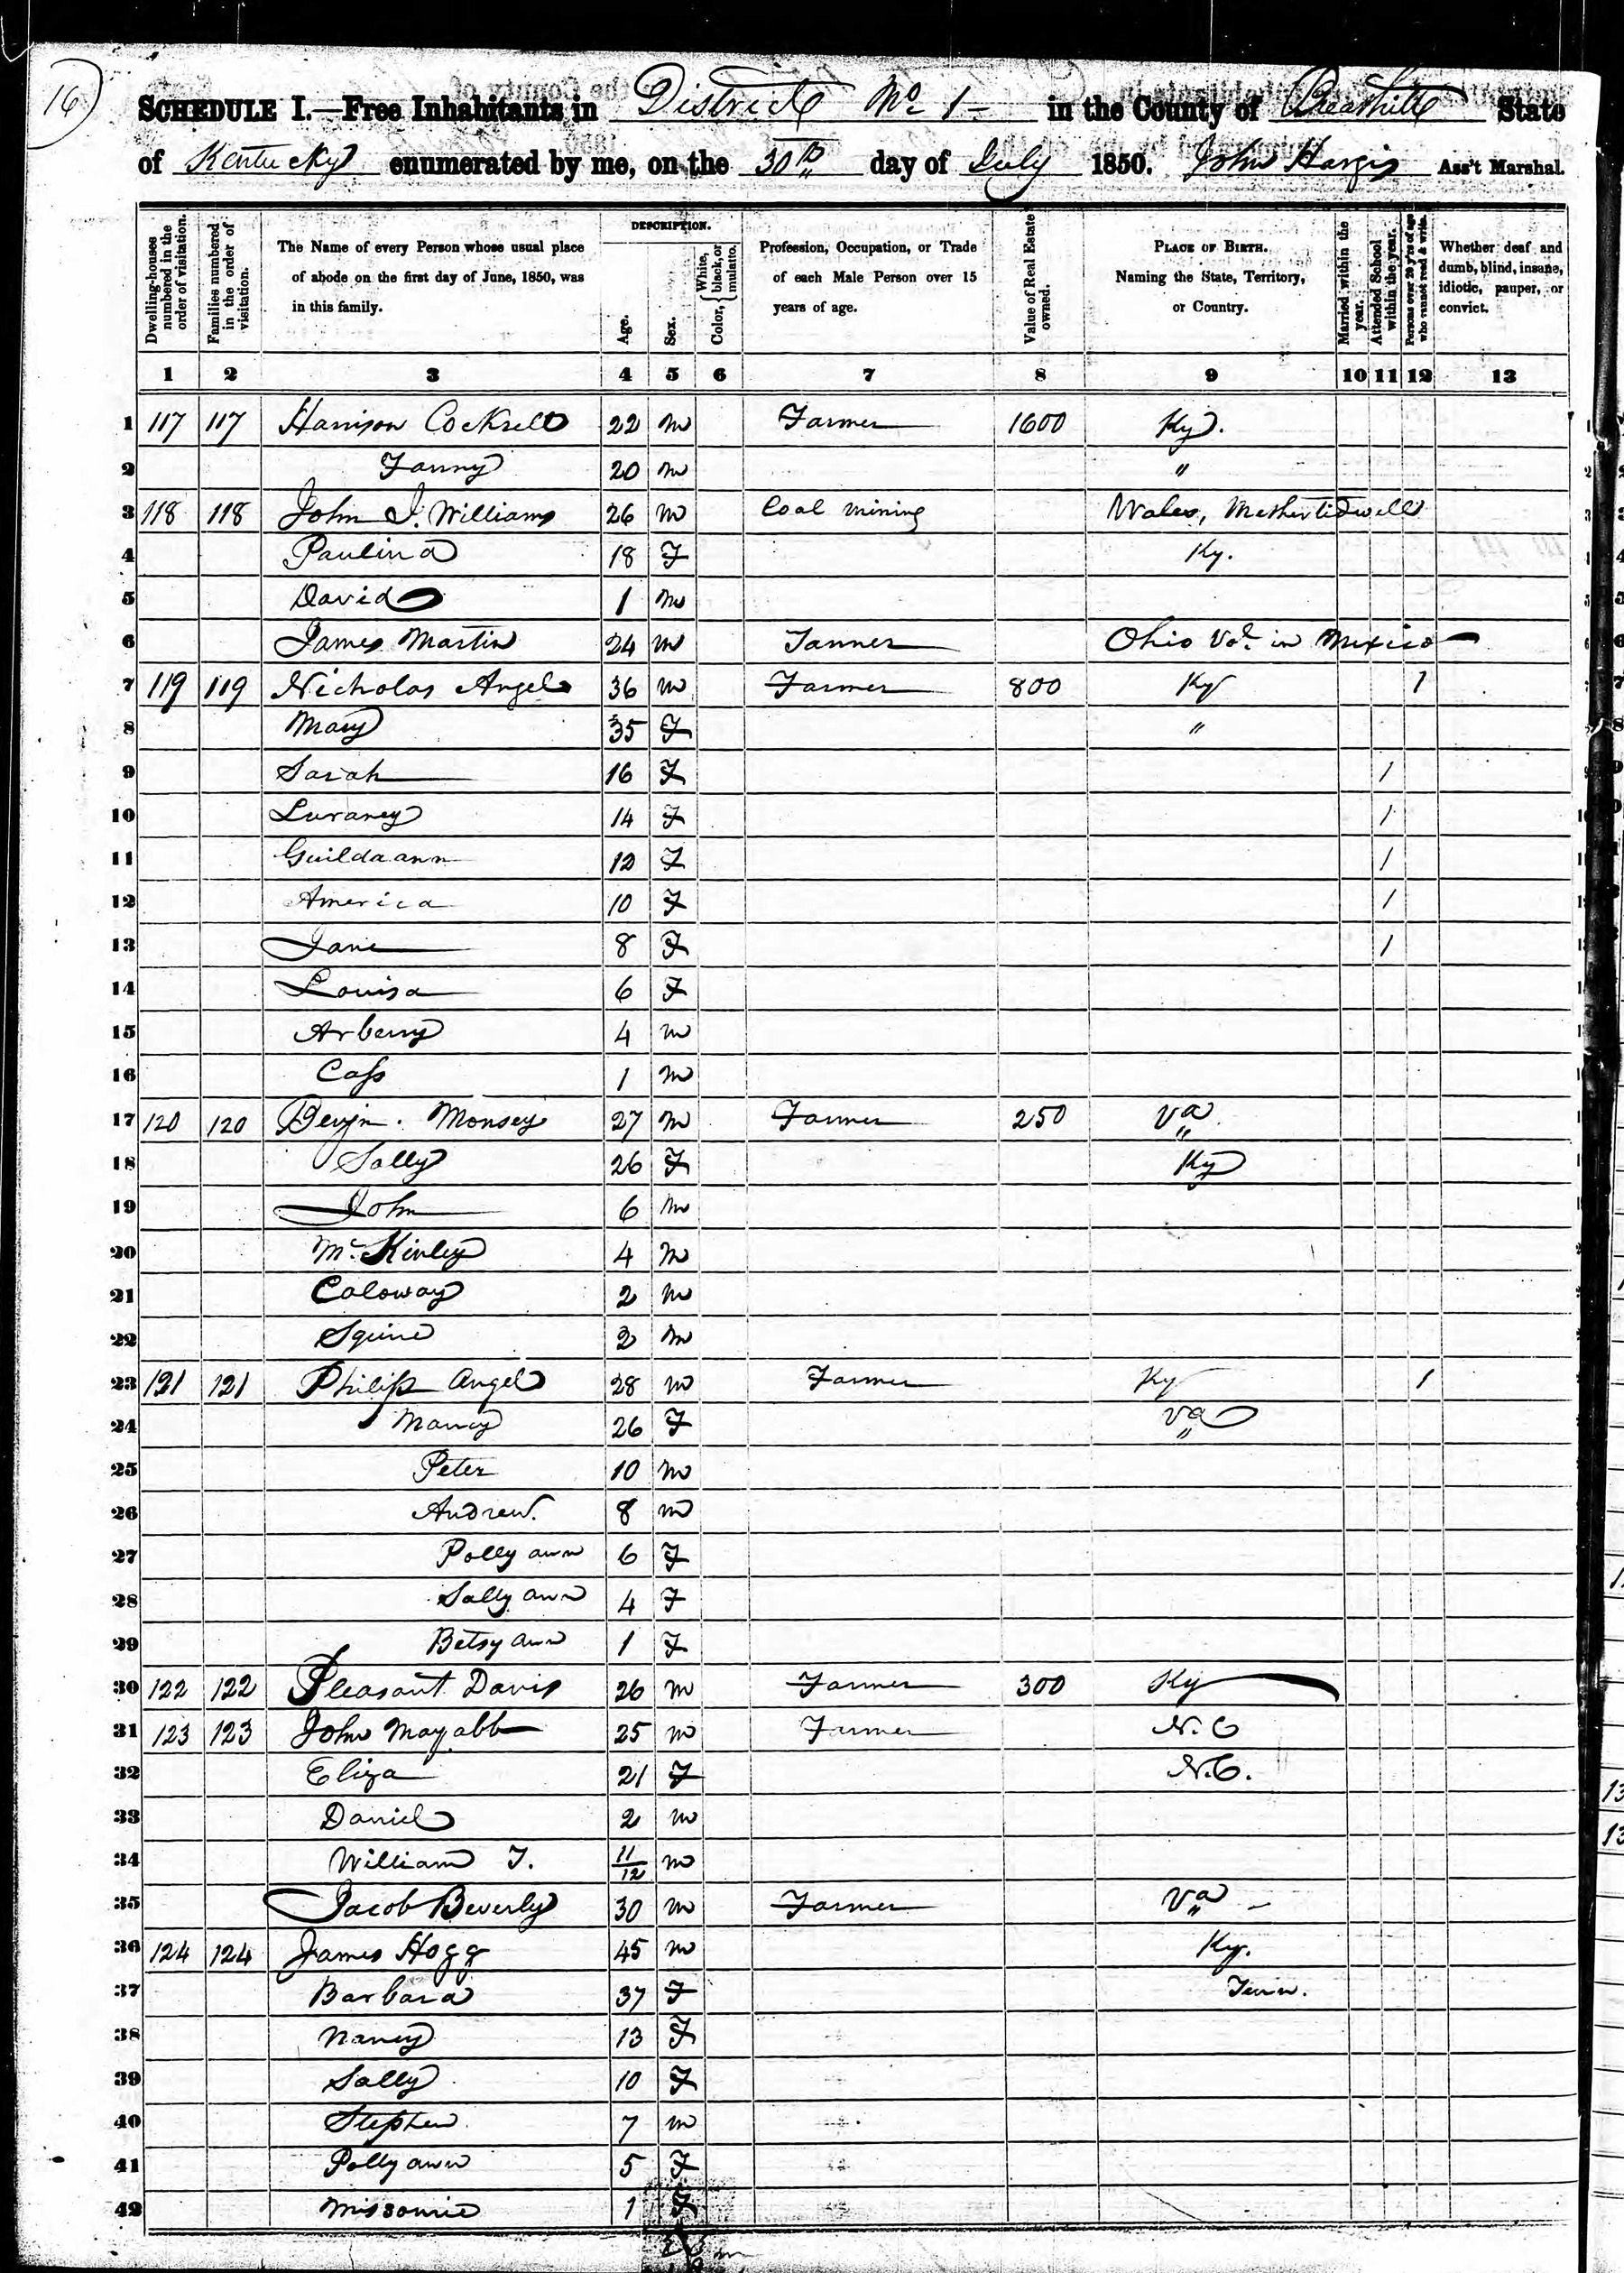 16
SCHEDULE I.—Free Inhabitants in District No 1 in the County of Breathitt State
of Kentucky enumerated by me, on the 30th day of July 1850. John Hargis Ass't Marshal.
Dwelling-houses numbered in the order of visitation.
Families numbered in the order of visitation.
The Name of every Person whose usual place of abode on the first day of June, 1850, was in this family.
DESCRIPTION.
Age.
Sex.
Color, { White, black, or mulatto.
Profession, Occupation, or Trade of each Male Person over 15 years of age.
Value of Real Estate owned.
PLACE OF BIRTH. Naming the State, Territory, or Country.
Married within the year.
Attended School within the year.
Persons over 20 y'rs of age who cannot read & write.
Whether deaf and dumb, blind, insane, idiotic, pauper, or convict.
1 2 3 4 5 6 7 8 9 10 11 12 13
1 117 117 Harrison Cockrell 22 m Farmer 1600 Ky.
2 Fanny 20 m "
3 118 118 John J. Williams 26 m Coal mining Wales, Mether tidwell
4 Paulina 18 F Ky.
5 David 1 m
6 James Martin 24 m Tanner Ohio Vol. in Mexico
7 119 119 Nicholas Angel 36 m Farmer 800 Ky 1
8 Mary 35 F "
9 Sarah 16 F 1
10 Luraney 14 F 1
11 Guildaann 12 F 1
12 America 10 F 1
13 Jane 8 F 1
14 Louisa 6 F
15 Arberry 4 m
16 Cass 1 m
17 120 120 Benjn. Monsey 27 m Farmer 250 Va
18 Sally 26 F Ky
19 John 6 m
20 McKinley 4 m
21 Caloway 2 m
22 Squire 2 m
23 121 121 Philip Angel 28 m Farmer Ky 1
24 Nancy 26 F Va
25 Peter 10 m
26 Andrew. 8 m
27 Polly ann 6 F
28 Sally ann 4 F
29 Betsy ann 1 F
30 122 122 Pleasant Davis 26 m Farmer 300 Ky
31 123 123 John Mayabb 25 m Farmer N. C
32 Eliza 21 F N.C.
33 Daniel 2 m
34 William T. 11/12 m
35 Jacob Beverly 30 m Farmer Va
36 124 124 James Hogg 45 m Ky.
37 Barbara 37 F Tenn.
38 Nancy 13 F
39 Sally 10 F
40 Stephen 7 m
41 Polly ann 5 F
42 Missourie 1 F